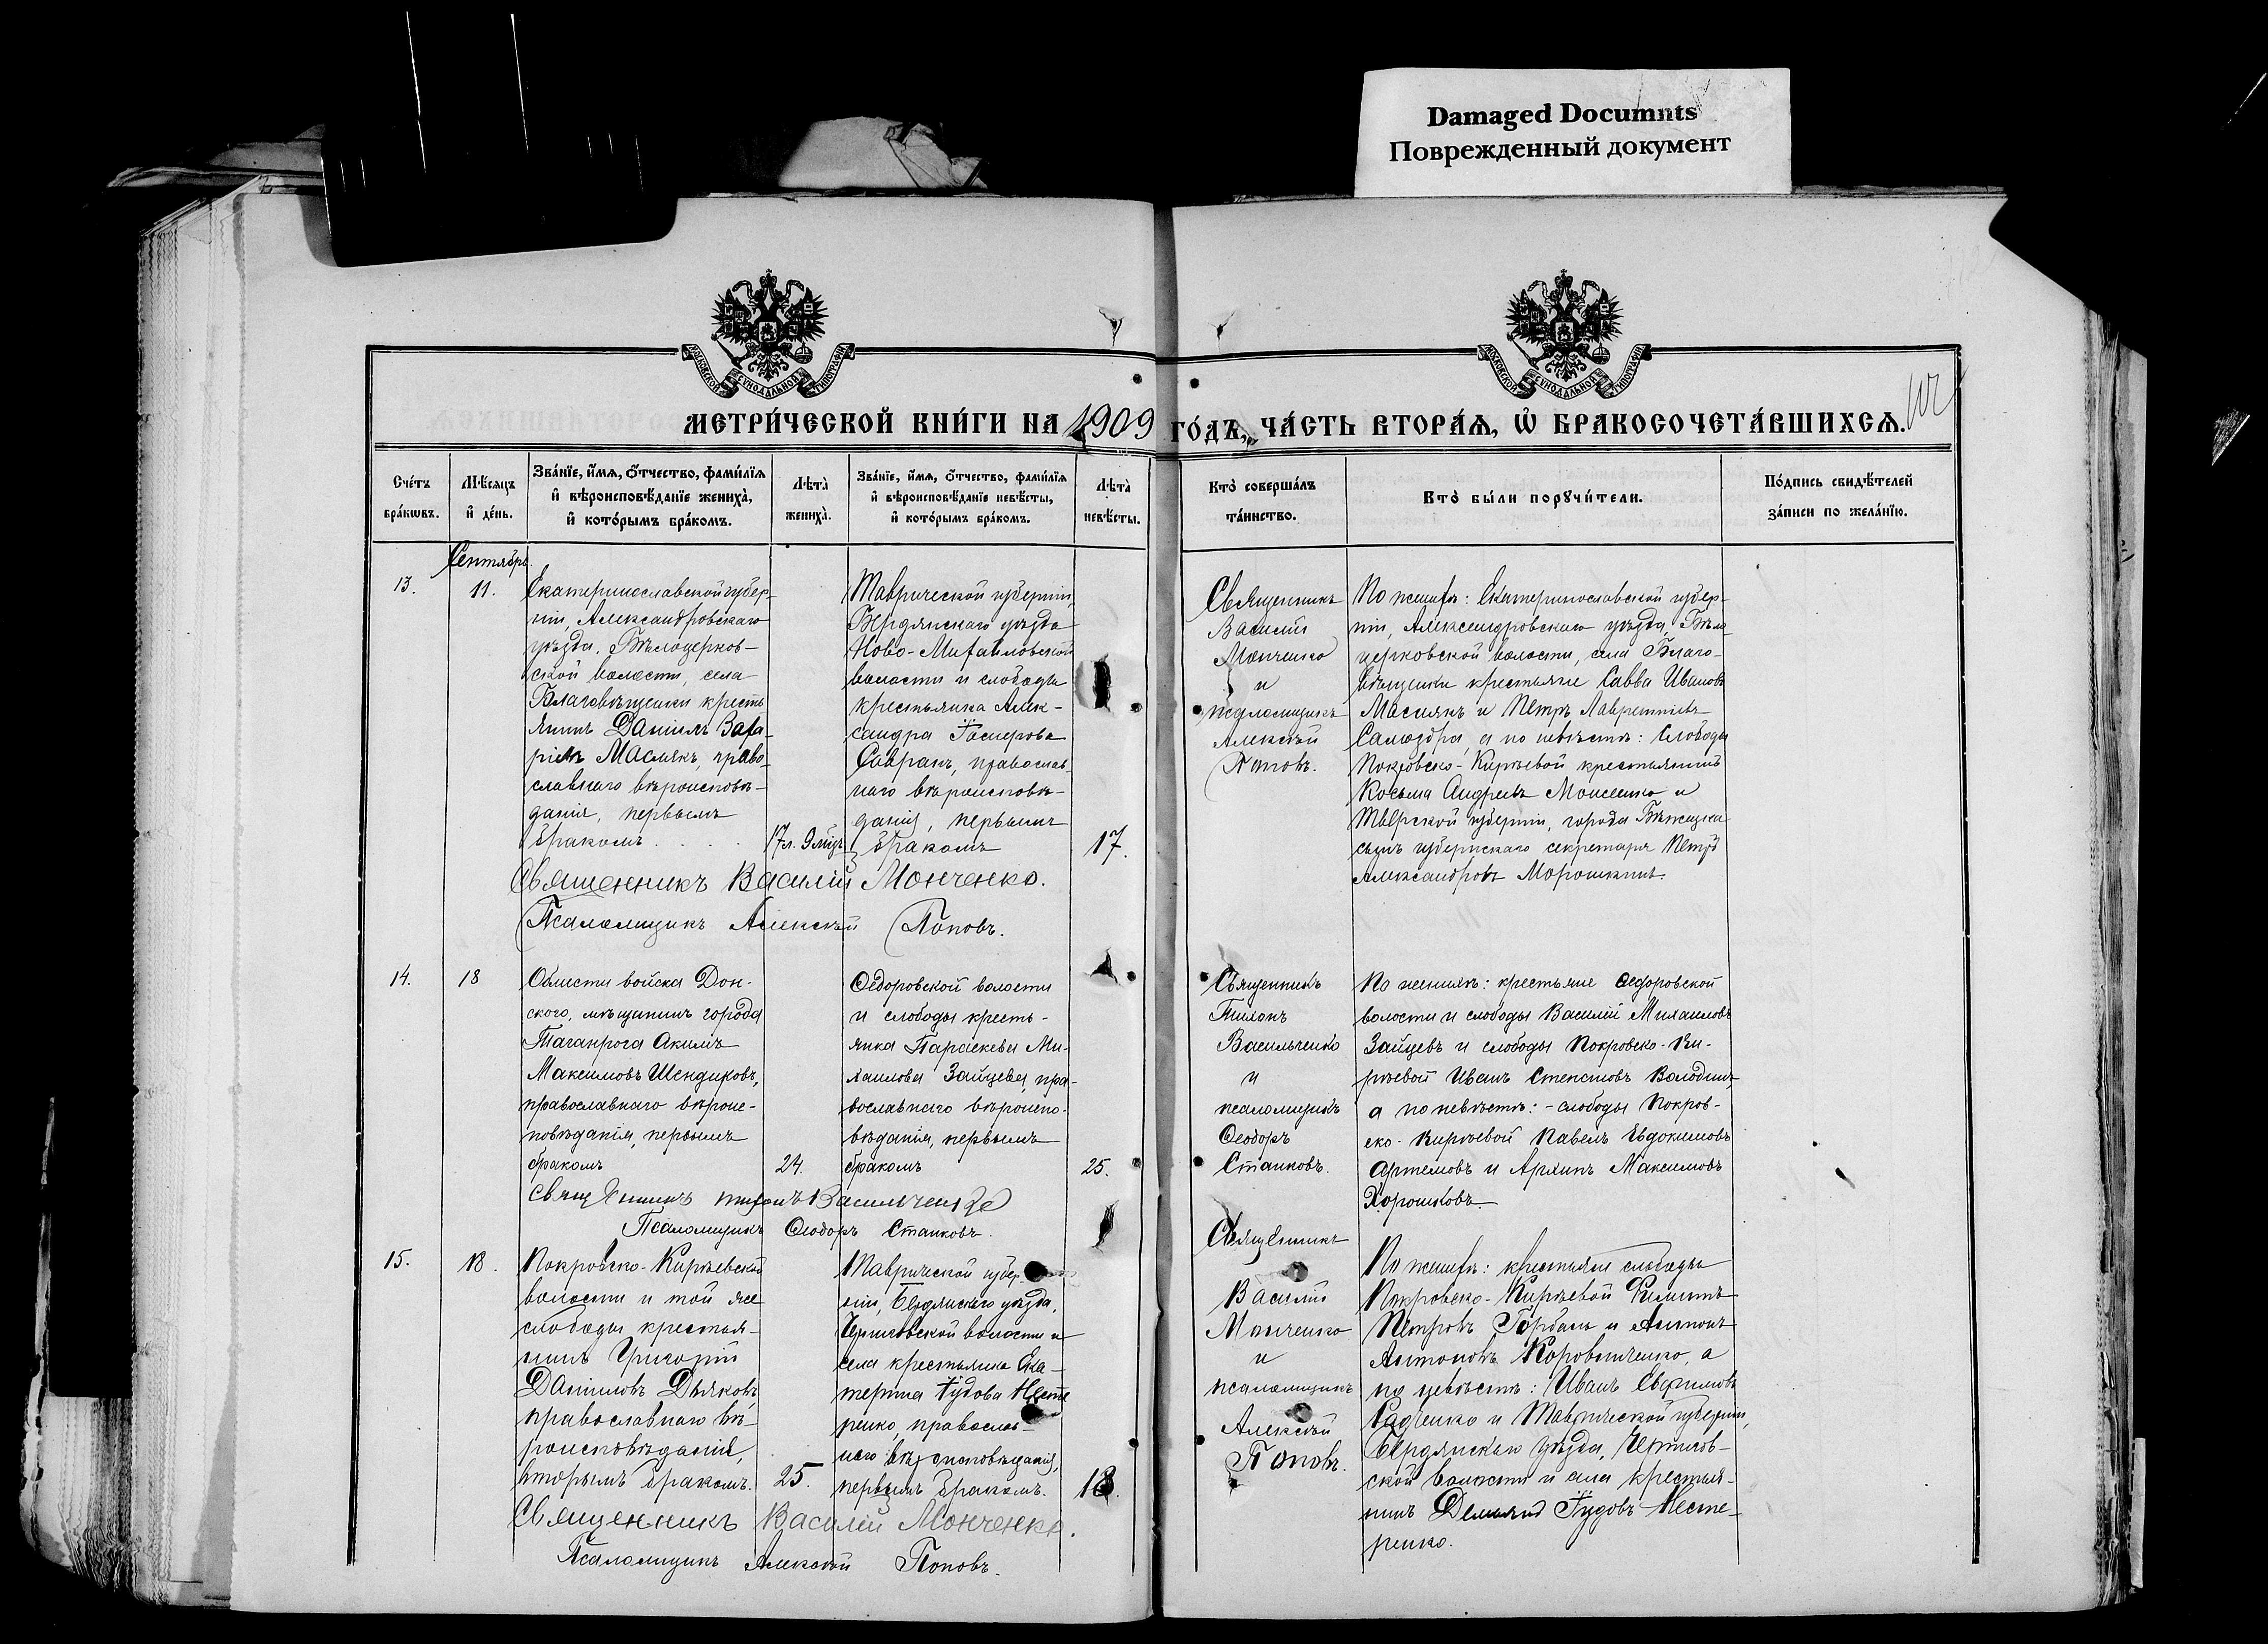 Damaged Documnts
Поврежденный документ
МОСКОВСКОЙ СѴНОДАЛЬНОЙ ТИПОГРАФІИ
МОСКОВСКОЙ СѴНОДАЛЬНОЙ ТИПОГРАФІИ
МЕТРИ́ЧЕСКОЙ КНИ́ГИ НА 1909 ГО́ДЪ, ЧА́СТЬ ВТОРА́Ѧ, Ѽ БРАКОСОЧЕТА́ВШИХСѦ.
Сче́тъ
бра́кѡвъ.
Мѣ́сѧцъ
и҆ де́нь.
Зва́нїе, и҆́мѧ, ѻ҆́тчество, фами́лїѧ
и҆ вѣроисповѣ́данїе жениха̀,
и҆ кото́рымъ бра́комъ.
Лѣ́та̀
жениха̀.
Зва́нїе, и҆́мѧ, ѻ҆́тчество, фами́лїѧ
и҆ вѣроисповѣ́данїе невѣ́сты,
и҆ кото́рымъ бра́комъ.
Лѣ́та̀
невѣ́сты.
Кто̀ соверша́лъ
та́инство.
Кто̀ бы́ли порꙋчи́тели.
По́дпись свидѣ́телей
за́писи по жела́нїю.
Сентябрь.
13.
11.
Екатеринославской губер-
ніи, Александровскаго
уѣзда, Бѣлоцерков-
ской волости, села
Благовѣщенки кресть
янинъ Даніилъ Заха-
ріевъ Маслякъ, право-
славнаго вѣроисповѣ-
данія, первымъ
бракомъ
17 л. 9 мѣц.
Таврической губерніи,
Бердянскаго уѣзда
Ново-Михайловской
волости и слободы
крестьянка Алек-
сандра
Савранъ, православ-
наго вѣроисповѣ-
данія, первымъ
бракомъ
17.
Священникъ
Василій
Монченко
и
псаломщикъ
Алексѣй
Поповъ.
По женихѣ: Екатеринославской губер-
ніи, Александровскаго уѣзда, Бѣло
церковской волости, села Благо-
вѣщенки крестьяне Савва Ивановъ
Маслякъ и Петръ Лаврентіевъ
а по невѣстѣ: слободы
Покровско-Кирѣевой крестьянинъ
Косьма Андреевъ Моисеенко и
Тверской губерніи, города Бѣжецка
сынъ губернскаго секретаря Петръ
Александровъ Морошкинъ.
Священникъ Василій Монченко.
Псаломщикъ Алексѣй Поповъ.
14.
18
Области войска Дон-
ского, мѣщанинъ города
Таганрога Акимъ
Максимовъ Шендиковъ,
православнаго вѣроис-
повѣданія, первымъ
бракомъ
24.
Ѳедоровской волости
и слободы кресть-
янка Параскева Ми-
хаилова Зайцева, пра-
вославнаго вѣроиспо-
вѣданія, первымъ
бракомъ
25.
Священникъ
Тихонъ
Васильченко
и
псаломщикъ
Ѳеодоръ
Станковъ.
По женихѣ: крестьяне Ѳедоровской
волости и слободы Василій Михаиловъ
Зайцевъ и слободы Покровско-Ки-
рѣевой Иванъ Степановъ Володинъ,
а по невѣстѣ: - слободы Покров-
ско-Кирѣевой Павелъ Евдокимовъ
Артемовъ и Архипъ Максимовъ
Хорошковъ.
Священникъ Тихонъ Васильченко
Псаломщикъ Ѳеодоръ Станковъ.
15.
18.
Покровско-Кирѣевской
волости и той же
слободы крестья-
нинъ Григорій
Даниловъ Дьяковъ
православнаго вѣ-
роисповѣданія,
вторымъ бракомъ.
25.
Таврической губер-
ніи, Бердянскаго уѣзда,
Черниговской волости и
села крестьянка Ека-
терина Іудова Несте
ренко, православ-
наго вѣроисповѣданія,
первымъ бракомъ.
18.
Священникъ
Василій
Монченко
и
псаломщикъ
Алексѣй
Поповъ.
По женихѣ: крестьяне слободы
Покровско-Кирѣевой Филиппъ
Петровъ Горбань и Антонъ
Антоновъ Коровниченко, а
по невѣстѣ: Иванъ Евфимовъ
Радченко и Таврической губерніи,
Бердянскаго уѣзда, Чернигов-
ской волости и села крестья-
нинъ Демьянъ Іудовъ Несте-
ренко.
Священникъ Василій Монченко.
Псаломщикъ Алексѣй Поповъ.